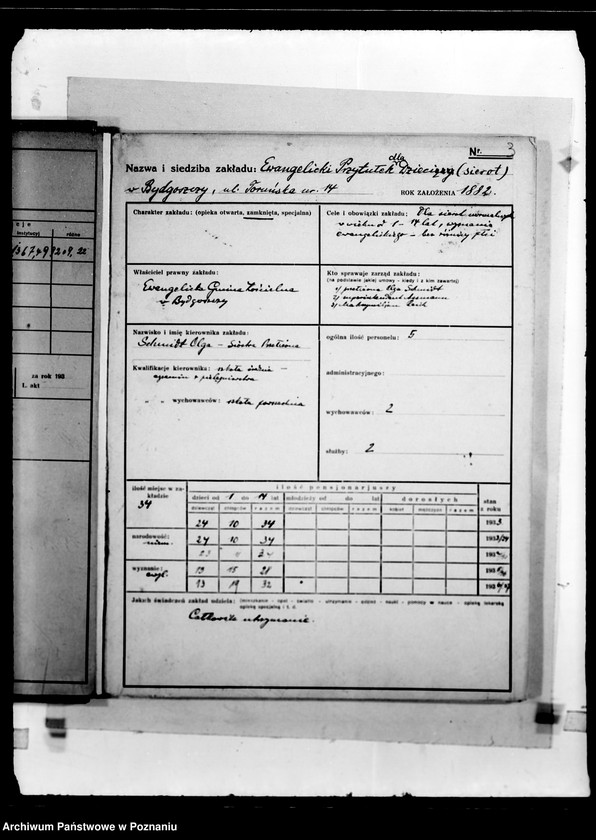 Nr. 3
dla
Nazwa i siedziba zakładu: Ewangelicki Przytułek Dziecięcy (sierot)
w Bydgoszczy, ul. Toruńska nr. 14 ROK ZAŁOŻENIA 1882.
Charakter zakładu: (opieka otwarta, zamknięta, specjalna)
Cele i obowiązki zakładu: Dla sierot normalnych
w wieku od 1 - 14 lat, wyznania
ewangelickiego - bez różnicy płci
Właściciel prawny zakładu:
Ewangelicka Gmina Kościelna
w Bydgoszczy
Kto sprawuje zarząd zakładu:
(na podstawie jakiej umowy - kiedy i z kim zawartej)
1) siostra Olga Schmidt
2) superintendent Assmann
3)
Nazwisko i imię kierownika zakładu:
Schmidt Olga - Siostra
Kwalifikacje kierownika: szkoła średnia -
egzamin z pielęgniarstwa
" " wychowawców: szkoła powszechna
ogólna ilość personelu: 5
administracyjnego:
wychowawców: 2
służby: 2
ilość miejsc w zakładzie
34
ilość pensjonarjuszy
dzieci od 1 do 14 lat młodzieży od do lat dorosłych stan z roku
dziewcząt chłopców razem dziewcząt chłopców razem kobiet mężczyzn razem
24 10 34 1933
narodowość: 24 10 34 1933/34
23 34 193
wyznanie: 13 15 28 193
ewgl. 13 19 32 193
Jakich świadczeń zakład udziela: (mieszkanie - opał - światło - utrzymanie - odzież - nauki - pomocy w nauce - opieką lekarską
opieką specjalną i t. d.
Całkowite utrzymanie.
cje
instytucyj różne
1367,49 9209,22
za rok 193
L. akt
Archiwum Państwowe w Poznaniu